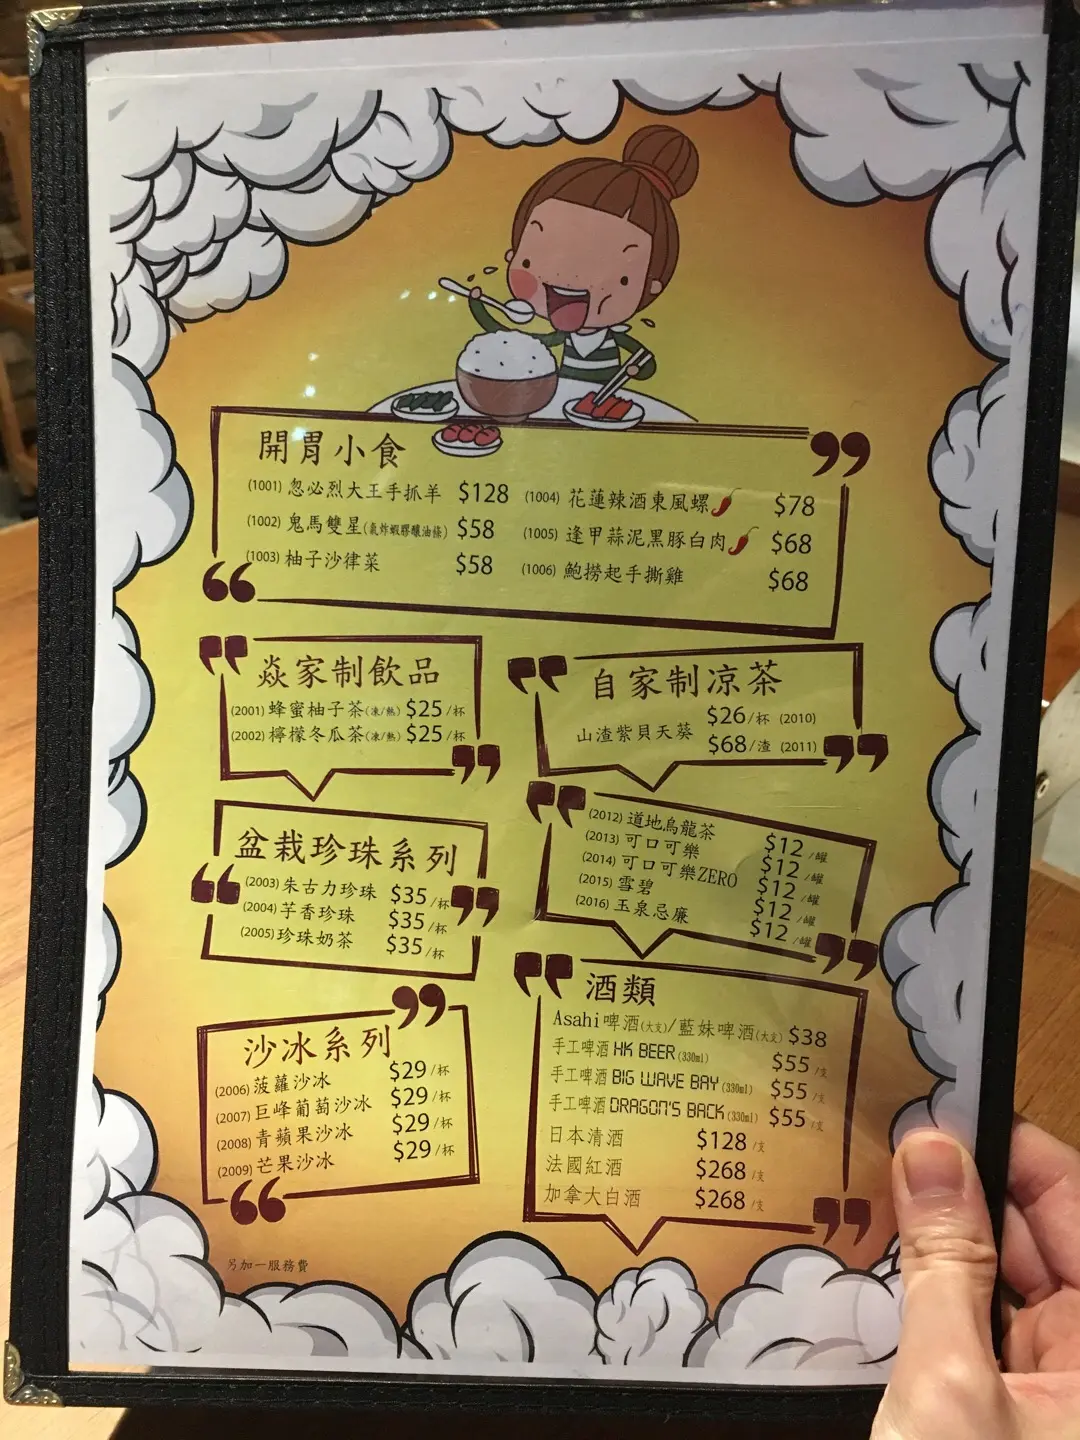 開胃小食
(1001) 忽必烈大王手抓羊 $128
(1002) 鬼馬雙星(氣炸蝦膠釀油條) $58
(1003) 柚子沙律菜 $58
(1004) 花蓮辣酒東風螺 $78
(1005) 逢甲蒜泥黑豚白肉 $68
(1006) 鮑撈起手撕雞 $68
焱家制飲品
(2001) 蜂蜜柚子茶(凍/熱) $25/杯
(2002) 檸檬冬瓜茶(凍/熱) $25/杯
自家制凉茶
山渣紫貝天葵
$26/杯 (2010)
$68/渣 (2011)
盆栽珍珠系列
(2003) 朱古力珍珠 $35/杯
(2004) 芋香珍珠 $35/杯
(2005) 珍珠奶茶 $35/杯
(2012) 道地烏龍茶 $12/罐
(2013) 可口可樂 $12/罐
(2014) 可口可樂ZERO $12/罐
(2015) 雪碧 $12/罐
(2016) 玉泉忌廉 $12/罐
沙冰系列
(2006) 菠蘿沙冰 $29/杯
(2007) 巨峰葡萄沙冰 $29/杯
(2008) 青蘋果沙冰 $29/杯
(2009) 芒果沙冰 $29/杯
酒類
Asahi啤酒(大支)/藍妹啤酒(大支) $38
手工啤酒 HK BEER(330ml) $55/支
手工啤酒 BIG WAVE BAY(330ml) $55/支
手工啤酒 DRAGON'S BACK(330ml) $55/支
日本清酒 $128/支
法國紅酒 $268/支
加拿大白酒 $268/支
另加一服務費